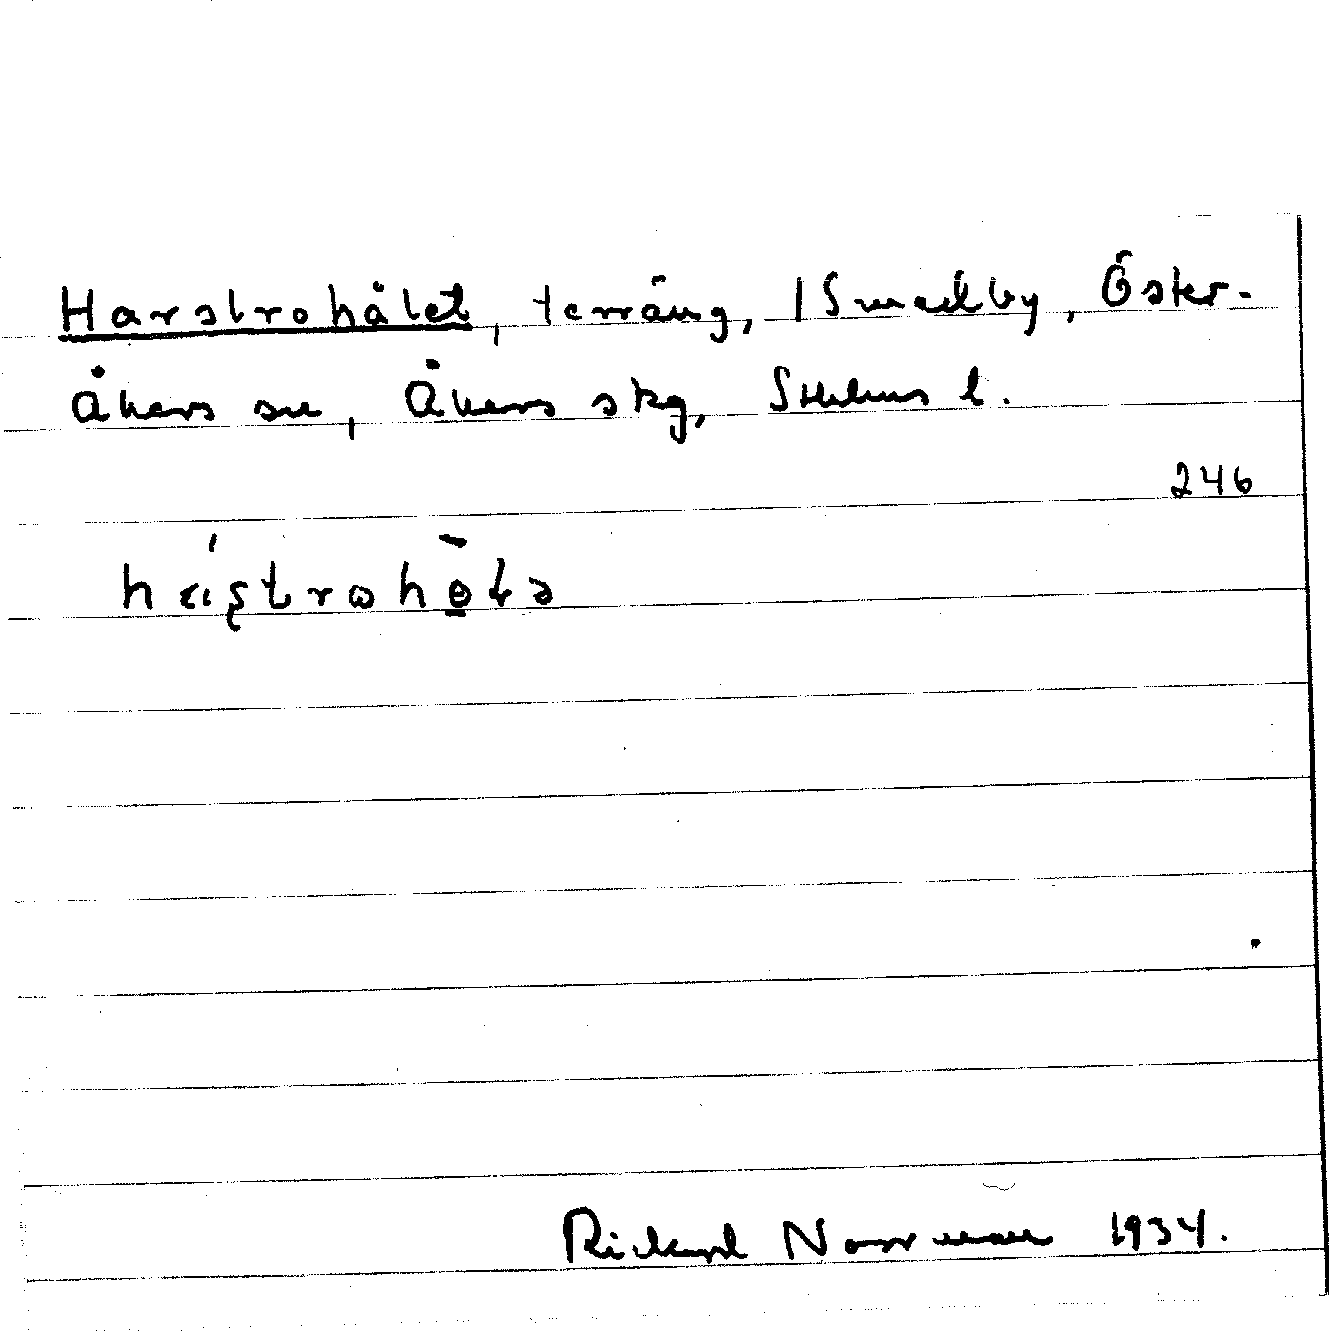 Harstrohålet, terräng, 1 Smedby, Öster-
Åkers sn, Åkers skg, Sthlms l.
246
Rickard Norrman 1934.